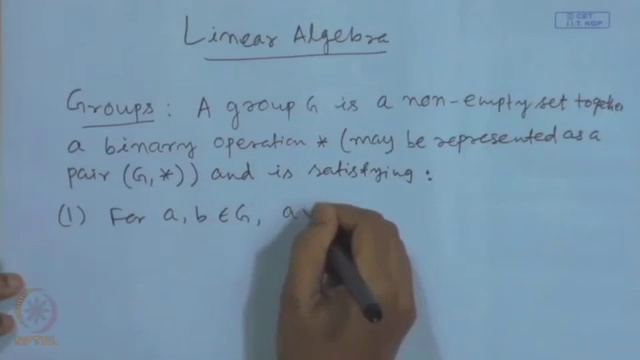 © CET
I.I.T. KGP
Linear Algebra
Groups : A group G is a non-empty set together
a binary operation * (may be represented as a
pair (G, *)) and is satisfying :
(1) For a, b ∈ G, a
NPTEL